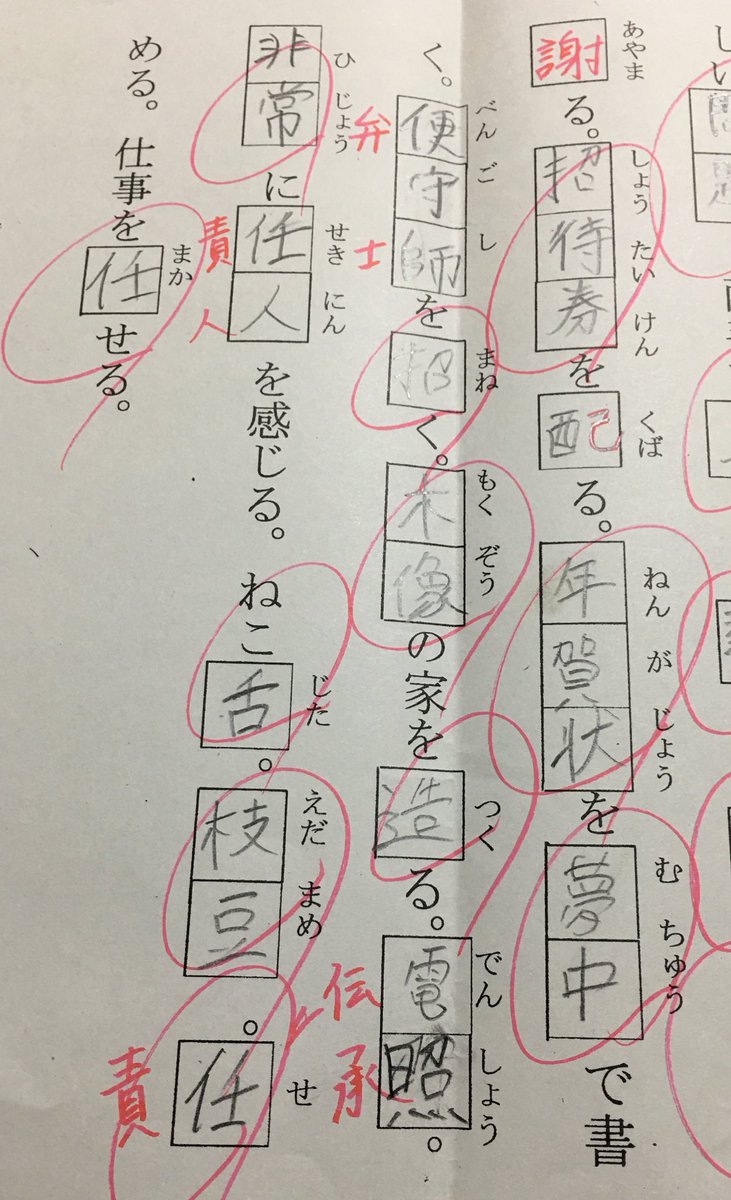 しい
あやま しょう たい けん くば ねん が じょう む ちゅう
謝る。招待券を配る。年賀状を夢中で書
べん ご し まね もく ぞう つく でん しょう
く。便守師を招く。木像の家を造る。電照。
弁 士 伝 承
ひ じょう せき にん じた えだ まめ せ
非常に任人を感じる。ねこ舌。枝豆。任
責 人 責
まか
める。仕事を任せる。